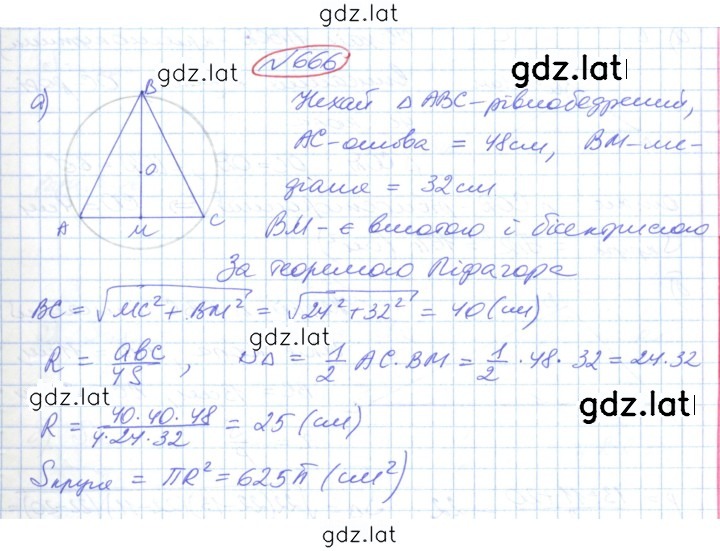 gdz.lat
№666
gdz.lat
gdz.lat
а)
B
O
A
M
C
Нехай △ ABC - рівнобедрений,
AC - основа = 48 см, BM - ме-
діана = 32 см
BM - є висотою і бісектрисою
За теоремою Піфагора
BC = √MC² + BM² = √24² + 32² = 40 (см)
gdz.lat
R = abc/4S , S△ = 1/2 AC · BM = 1/2 · 48 · 32 = 24 · 32
gdz.lat
gdz.lat
R = 40 · 40 · 48/4 · 24 · 32 = 25 (см)
Sкруга = πR² = 625π (см²)
gdz.lat